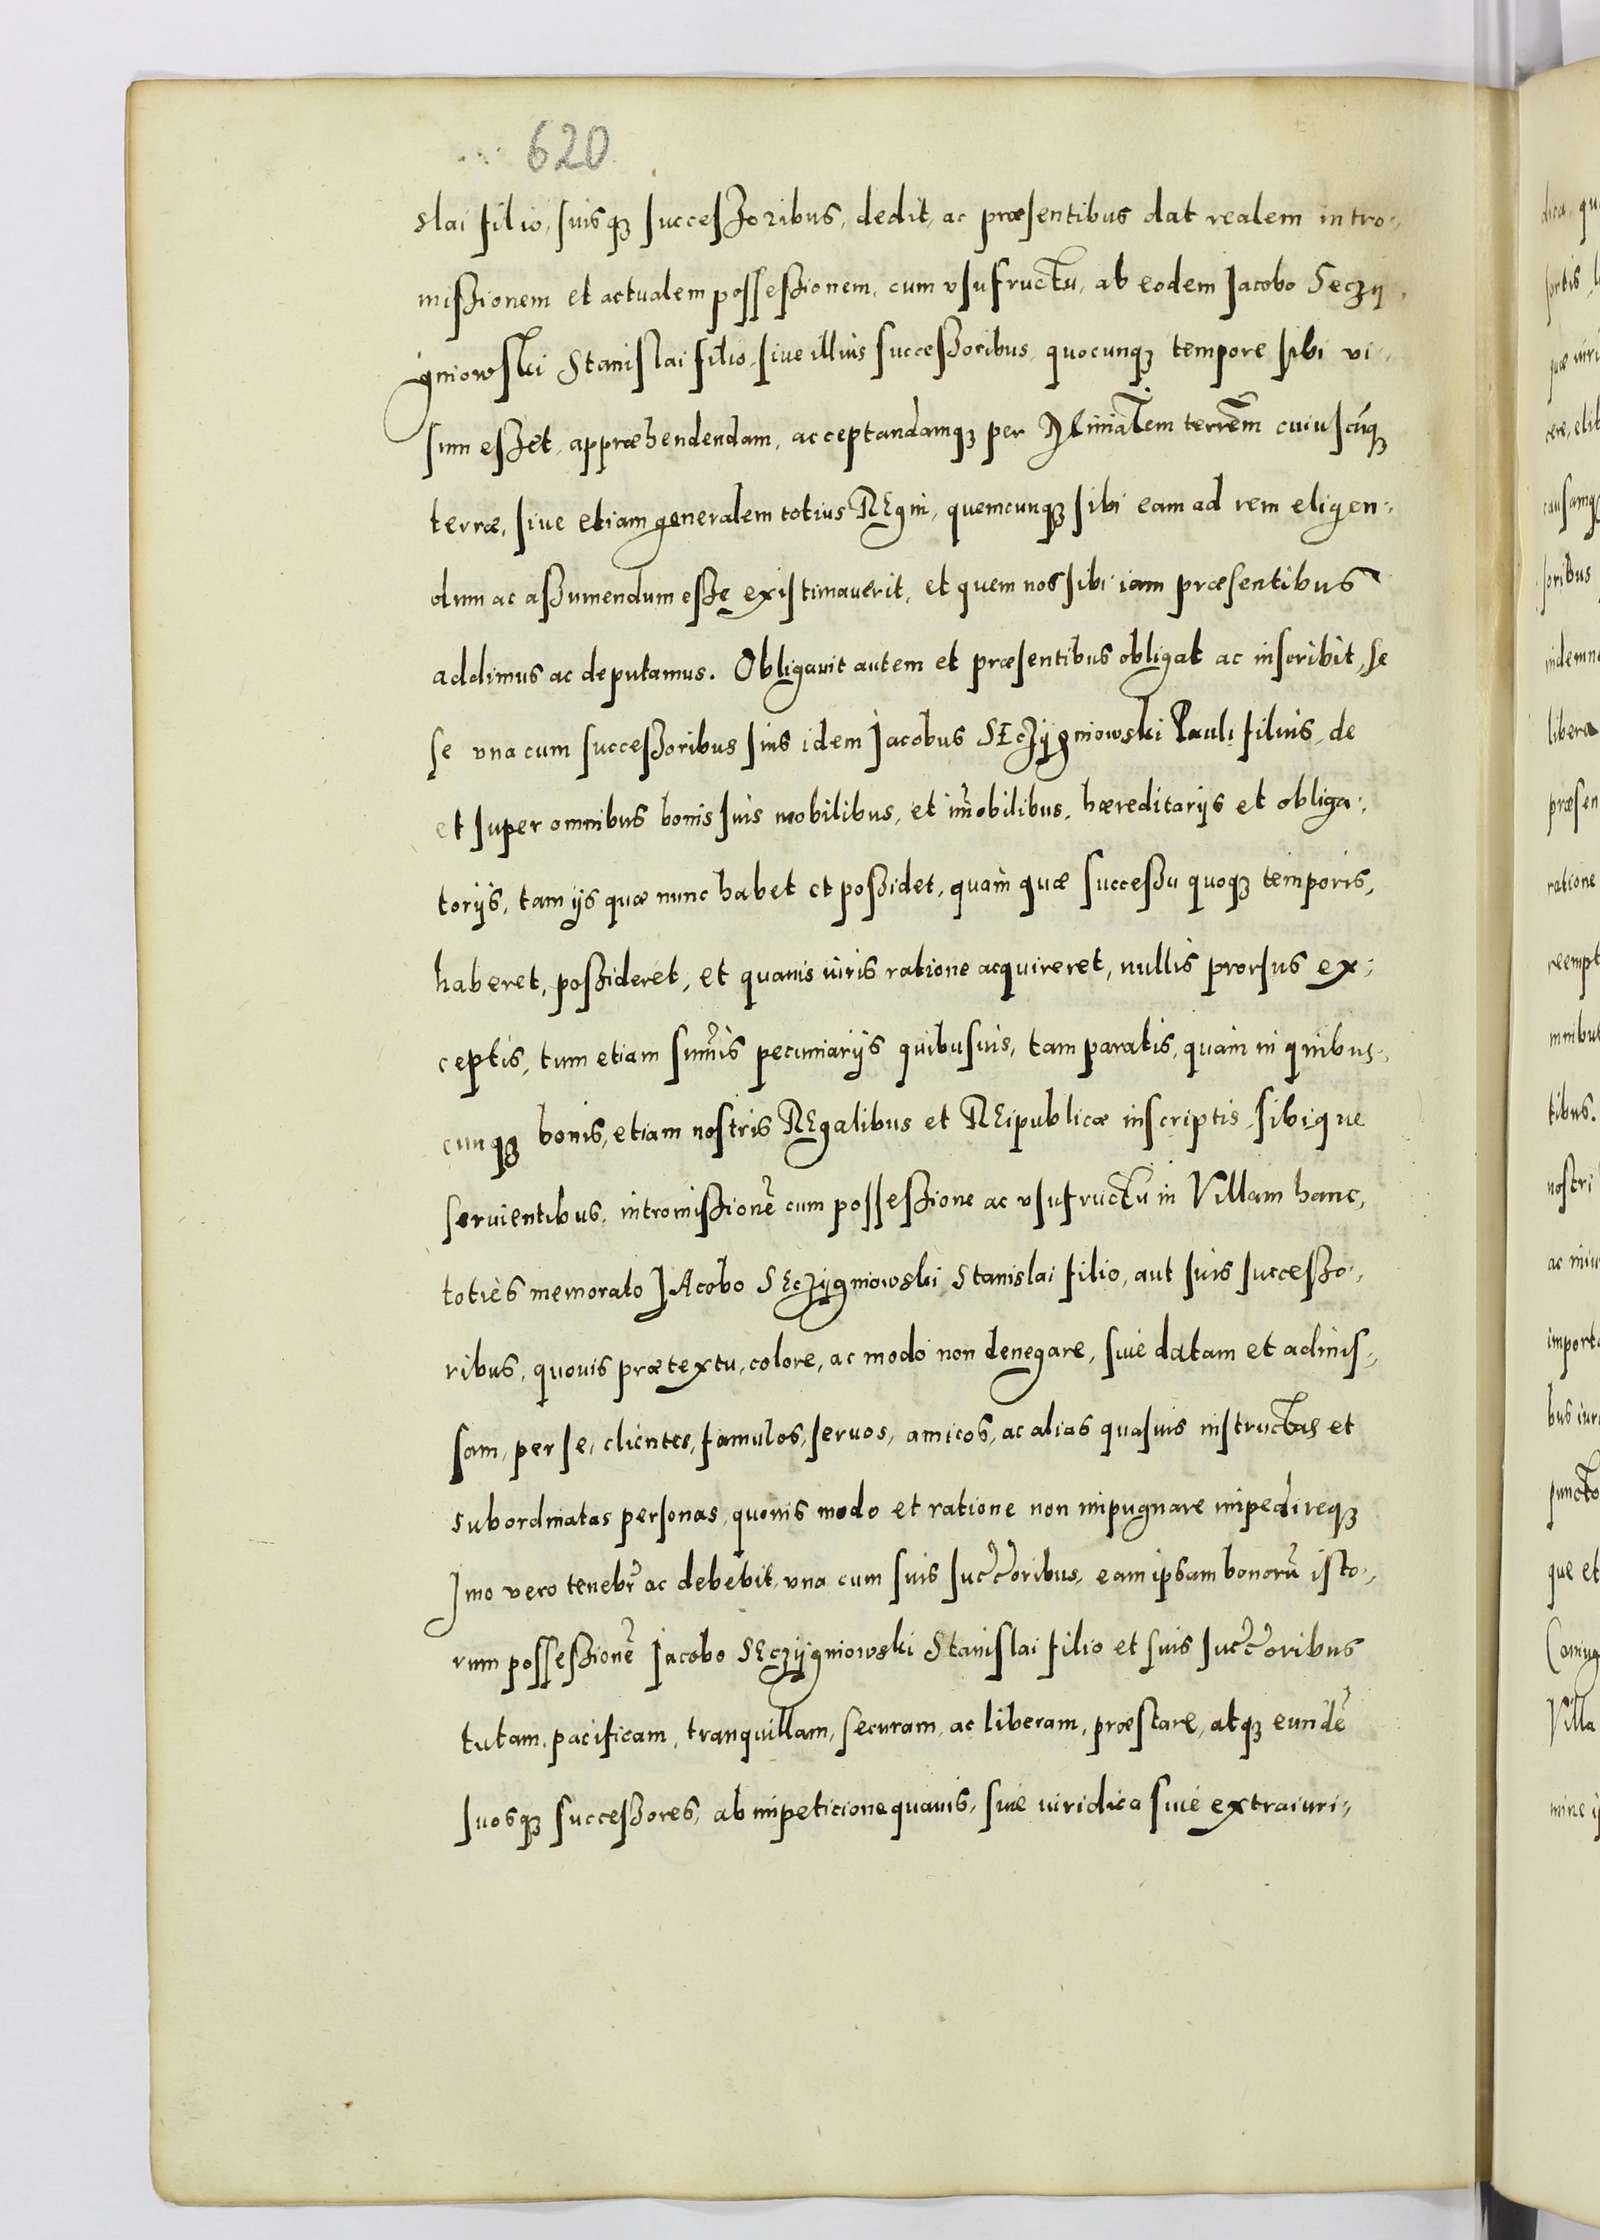 620
slai filio, suisq₃ successoribus, dedit, ac præsentibus dat realem intro-
missionem et actualem possessionem, cum vsufructu, ab eodem Jacobo Seczÿ-
gniowski Stanislai filio, siue illius successoribus, quocunq₃ tempore sibi vi-
sum esset, appræhendendam, acceptandamq₃ per Mĩniãlem terrẽm cuiuscũq₃
terræ, siue etiam generalem totius REgni, quemcunq₃ sibi eam ad rem eligen-
dum ac assumendum esse existimauerit, et quem nos sibi iam præsentibus
addimus ac deputamus. Obligauit autem et præsentibus obligat ac inscribit, se
se vna cum successoribus suis idem Jacobus SEczÿgniowski Pauli filius, de
et super omnibus bonis suis mobilibus, et im̃obilibus, hæreditarijs et obliga-
torijs, tam ijs quæ nunc habet et possidet, quàm quæ successu quoq₃ temporis,
haberet, possideret, et quauis iuris ratione acquireret, nullis prorsus ex-
ceptis, tum etiam sum̃is pecuniarijs quibusuis, tam paratis, quàm in quibus-
cunq₃ bonis, etiam nostris REgalibus et REipublicæ inscriptis, sibique
seruientibus, intromissionẽ cum possessione ac vsufructu in Villam hanc,
totiès memorato JAcobo SEczÿgniowski Stanislai filio, aut suis successo-
ribus, quouis prætextu, colore, ac modo non denegare, siue datam et admis-
sam, per se, clientes, famulos, seruos, amicos, ac alias quasuis instructas et
subordinatas personas, quouis modo et ratione non impugnare impedireq₃
Imo vero tenebr̃ ac debebit, vna cum suis succ̃oribus, eam ipsam bonorũ isto-
rum possessionẽ Jacobo SEczÿgniowski Stanislai filio et suis succ̃oribus
tutam, pacificam, tranquillam, securam, ac liberam, præstare, atq₃ eundẽ
suosq₃ successores, ab impeticione quauis, siue iuridica siue extraiuri-